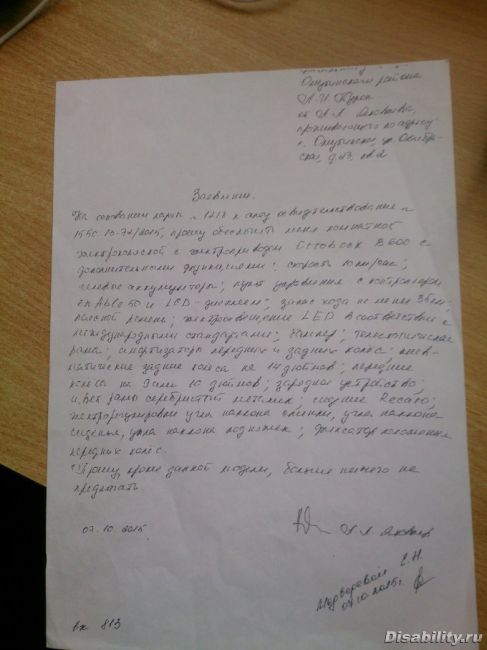 Омутинского района
от А.А. Яковлева,
проживающего по адресу
с. Омутинское, ул. Октябрь-
ская, д.
Заявление.
На основании карты № 1218 к акту освидетельствования №
2015, прошу обеспечить меня комнатной
электроколяской с электроприводом Ottobock B600 с
дополнительными функциями: скорость 10 км/час;
гелевые аккумуляторы; пульт управления с контроллером
en Able 50 и LCD-дисплеем; запас хода не менее 35 км;
поясной ремень; электроосвещение LED в соответствии с
международными стандартами; бампер; телескопическая
рама; амортизаторы передних и задних колёс; пнев-
матические задние колёса на 14 дюймов; передние
колёса на 9 или 10 дюймов; зарядное устройство;
цвет рамы серебристый металлик; сидение Recaro;
электрорегулировки угла наклона спинки, угла наклона
сиденья, угла наклона подножек; фиксатор положения
передних колёс.
Прошу, кроме данной модели, больше ничего не
предлагать.
07.10.2015
А.А. Яковлев
Е.Н.
07.10.2015г
вх 813
Disability.ru